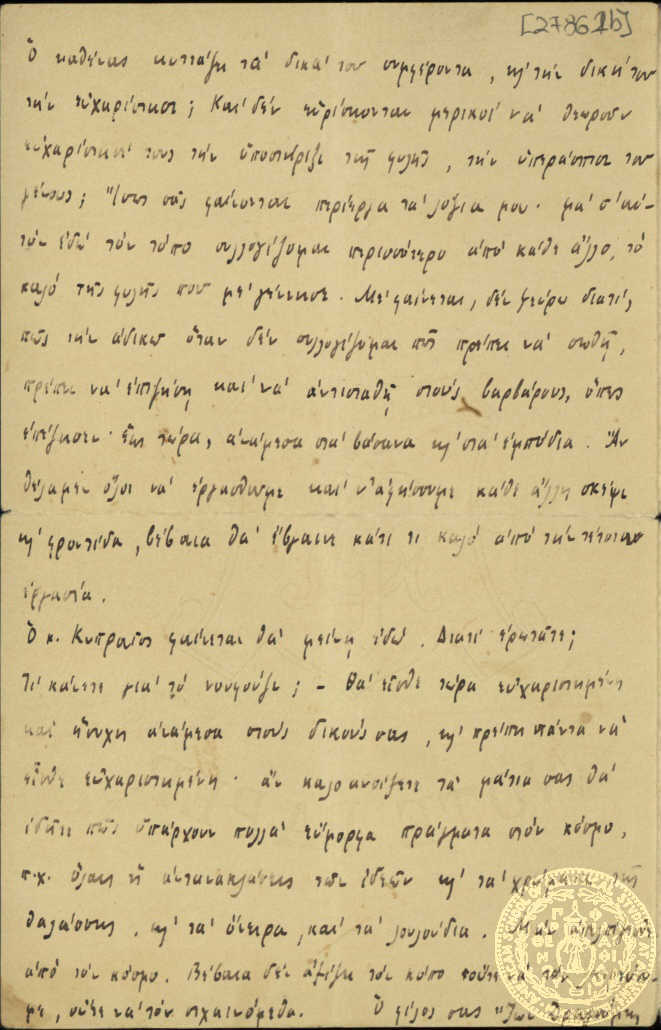 [27861b]
Ὁ καθένας κυττάζει τὰ δικά του συμφέροντα, κι' τὴν δική του
τὴν εὐχαρίστησι; Καὶ δὲν εὑρίσκονται μερικοὶ νὰ θεωροῦν
εὐχαρίστησί τους τὴν ὑποστήριξι τῆς φυλῆς, τὴν ὑπεράσπισι του
γένους; Ἴσως σᾶς φαίνονται περίεργα τὰ λόγια μου· μὰ σ' αὐ-
τὸν ἐδῶ τὸν τόπο συλλογίζομαι περισσότερο ἀπὸ κάθε ἄλλο, τὸ
καλὸ τῆς φυλῆς ποῦ μὲ γέννησε. Μὲ φαίνεται, δὲν ξεύρω διατί,
πῶς τὴν ἀδικῶ ὅταν δὲν συλλογίζομαι πῶς πρέπει νὰ σωθῇ,
πρέπει νὰ ἐπιζήσῃ καὶ νὰ ἀντισταθῇ στοὺς βαρβάρους, ὅπως
ἐπέζησεν ἕως τώρα, ἀνάμεσα στὰ βάσανα κι' στὰ ἐμπόδια. Ἂν
θέλαμεν ὅλοι νὰ ἐργασθοῦμε καὶ ν' ἀφήσουμε κάθε ἄλλη σκέψι
κι' φροντίδα, βέβαια θὰ ἔβγαινε κάτι τι καλὸ ἀπὸ τὴν τέτοιαν
ἐργασία.
Ὁ κ. Κυπραῖος φαίνεται θὰ μείνῃ ἐδῶ. Διατί ἐρωτᾶτε;
Τί κάνετε γιὰ τὸ νουφούζι; – Θὰ εἶσθε τώρα εὐχαριστημένη
καὶ ἥσυχη ἀνάμεσα στοὺς δικούς σας, κι' πρέπει πάντα νὰ
εἶσθε εὐχαριστημένη· ἂν καλοανοίξετε τὰ μάτια σας θὰ
ἰδῆτε πῶς ὑπάρχουν πολλὰ εὔμορφα πράγματα στὸν κόσμο,
π.χ. ὅλαις ᾑ ἀντανακλάσεις τῶν ἰδεῶν κι' τὰ χρώματα τῆς
θαλάσσης, κι' τὰ ὄνειρα, καὶ τὰ λουλούδια. Μὴν
ἀπὸ τὸν κόσμο. Βέβαια δὲν ἀξίζει τὸν κόπο οὔτε νὰ τὸν
με, οὔτε νὰ τὸν σιχαινόμεθα. Ὁ φίλος σας Ἴων Δραγούμης